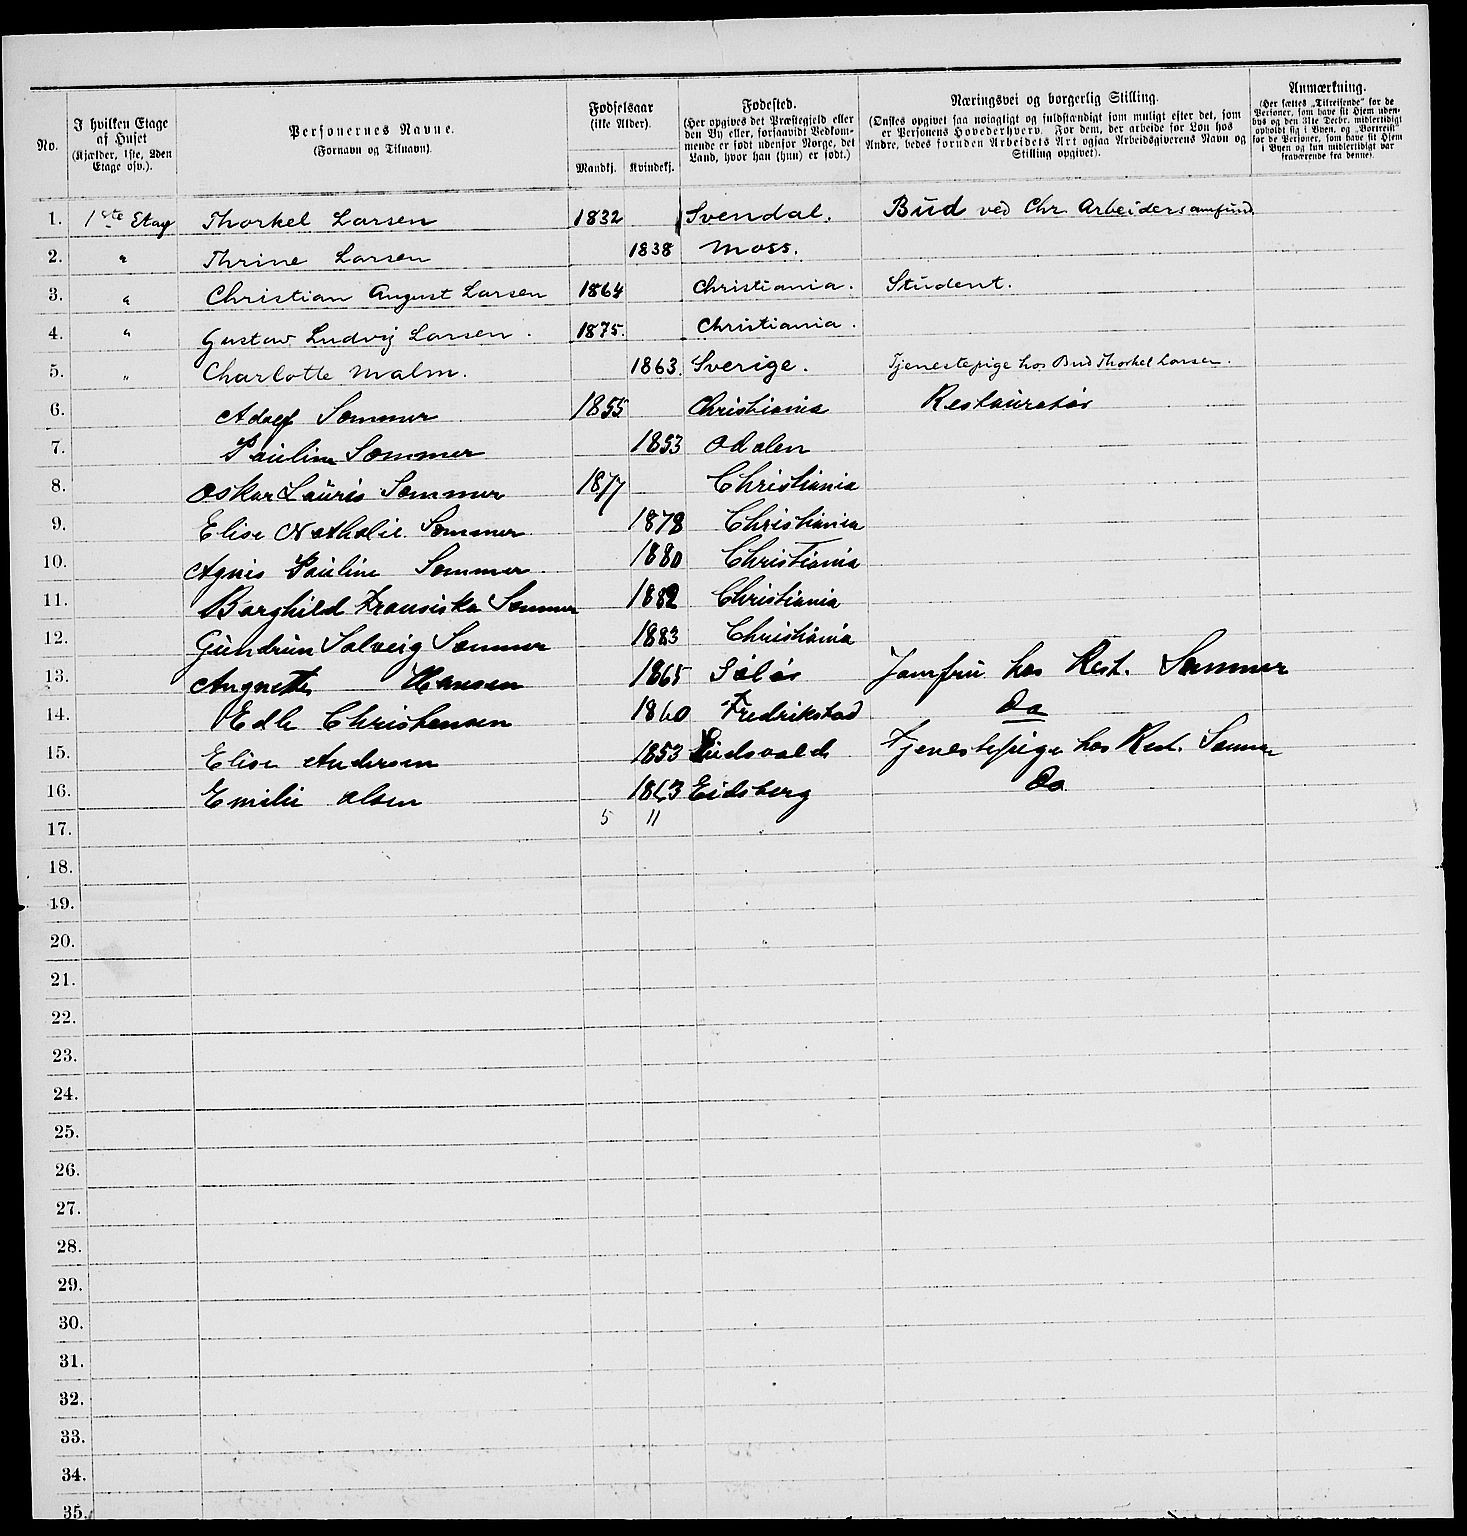 No.
I hvilken Etage af Huset (Kjælder, 1ste, 2den Etage osv.).
Personernes Navne. (Fornavn og Tilnavn).
Fødselsaar (ikke Alder).
Mandkj. Kvindekj.
Fødested. (Her opgives det Præstegjeld eller den By eller, forsaavidt Vedkommende er født udenfor Norge, det Land, hvor han (hun) er født.)
Næringsvei og borgerlig Stilling. (Ønskes opgivet saa nøiagtigt og fuldstændigt som muligt efter det, som er Personens Hovederhverv. For dem, der arbeide for Løn hos Andre, bedes foruden Arbeidets Art ogsaa Arbeidsgiverens Navn og Stilling opgivet).
Anmærkning. (Her sættes „Tilreisende" for de Personer, som have sit Hjem udenbys og den 31te Decbr. midlertidigt opholdt sig i Byen, og „Bortreist" for de Personer, som have sit Hjem i Byen og kun midlertidigt var fraværende fra denne).
1. 1ste Etag Thorkel Larsen 1832 Svendal. Bud ved Chr. Arbeidersamfund
2. " Thrine Larsen 1838 Moss.
3. " Christian August Larsen 1864 Christiania. Student.
4. " Gustav Ludvig Larsen. 1875. Christiania.
5. " Charlotte Malm. 1863. Sverige. Tjenestepige hos Bud Thorkel Larsen.
6. Adolf Sommer 1855 Christiania Restauratør
7. Pauline Sommer 1853 Odalen
8. Oskar Lauris Sommer 1877 Christiania
9. Elise Nathalie Sommer 1878 Christiania
10. Agnes Pauline Sommer. 1880 Christiania
11. Borghild Fransiska Sommer 1882 Christiania
12. Gundrun Solveig Sommer 1883 Christiania
13. Hansen 1865 Soløs Jomfru hos Rest. Sommer
14. Edle Christensen 1860 Fredrikstad Do
15. Elise Andersen 1853 Eidsvold Tjenestepige hos Rest. Sommer
16. Emilie Olsen 1863 Eidsberg Do
17. 5 11
18.
19.
20.
21.
22.
23.
24.
25.
26.
27.
28.
29.
30.
31.
32.
33.
34.
35.